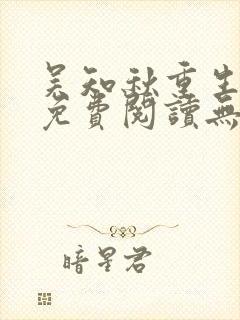 吴知秋重生
免費閱讀無
暗星君